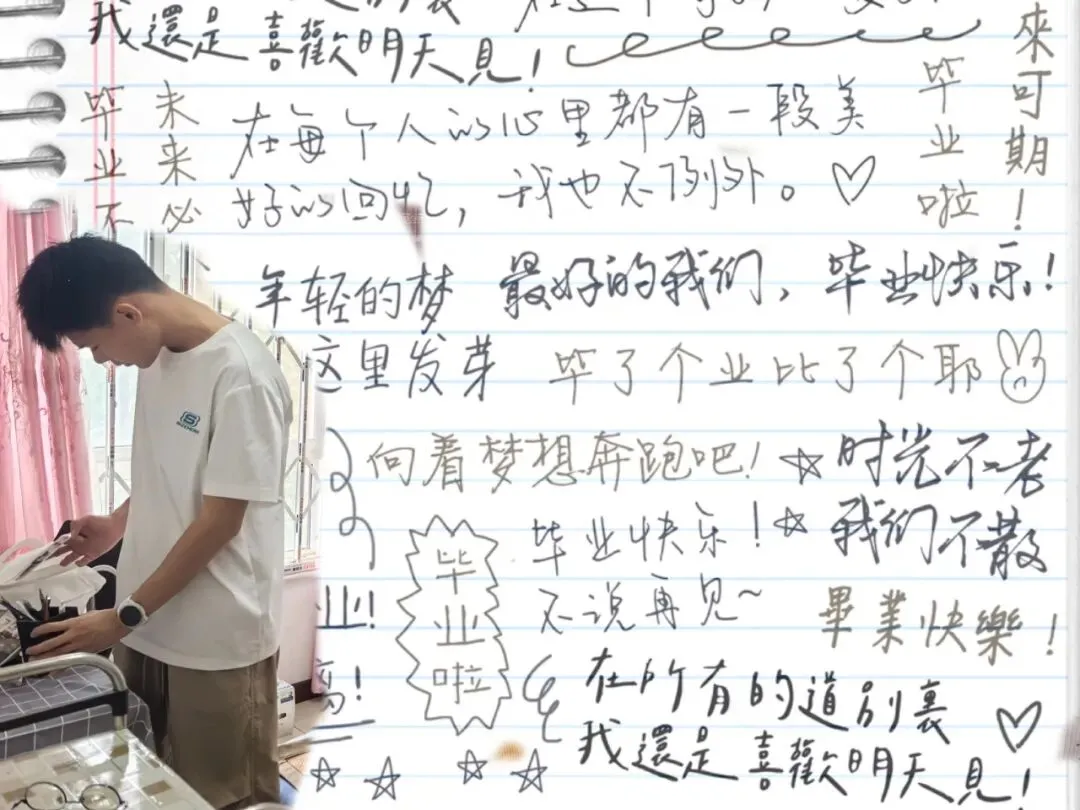 我還是喜歡明天見！
來可期！
毕业啦
毕业不
未来必
在每个人的心里都有一段美
好的回忆，我也不例外。
年轻的梦
这里发芽
最好的我们，毕业快乐！
毕了个业比了个耶
向着梦想奔跑吧！
时光不老
我们不散
毕业快乐！
不说再见~
毕业啦
业！
离！
畢業快樂！
在所有的道別裏
我還是喜歡明天見！